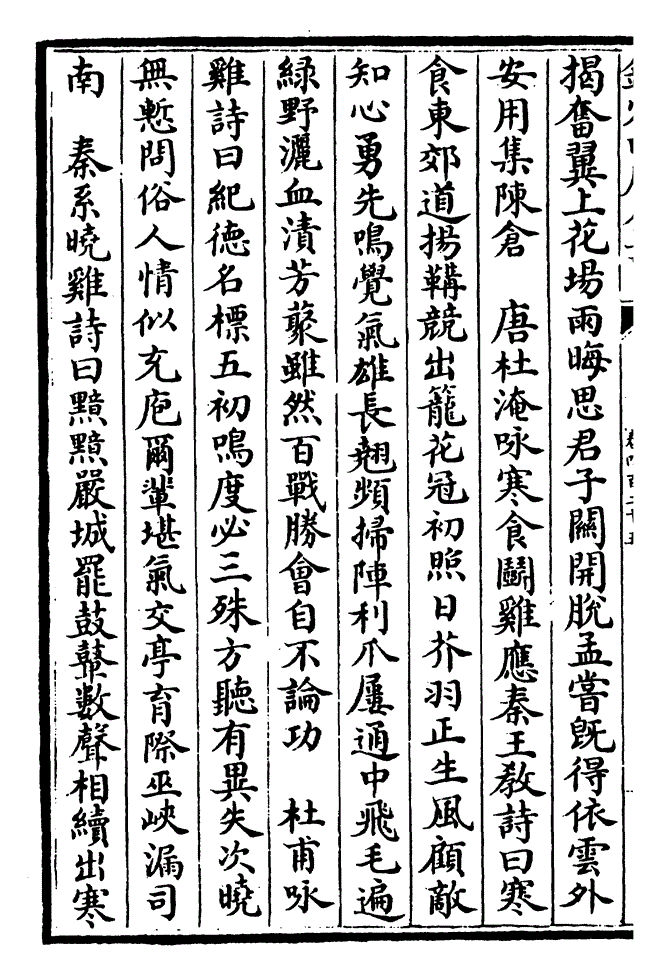 揭奮翼上花場雨晦思君子關開脫孟嘗旣得依雲外
安用集陳倉　唐杜淹咏寒食鬭雞應秦王教詩曰寒
食東郊道揚鞲競出籠花冠初照日芥羽正生風顧敵
知心勇先鳴覺氣雄長翹頻掃陣利爪屢通中飛毛遍
緑野灑血漬芳藂雖然百戰勝會自不論功　杜甫咏
雞詩曰紀德名標五初鳴度必三殊方聽有異失次曉
無慙問俗人情似充庖爾輩堪氣交亭育際巫峽漏司
南　秦系曉雞詩曰黯黯嚴城罷鼓鼙數聲相續出寒